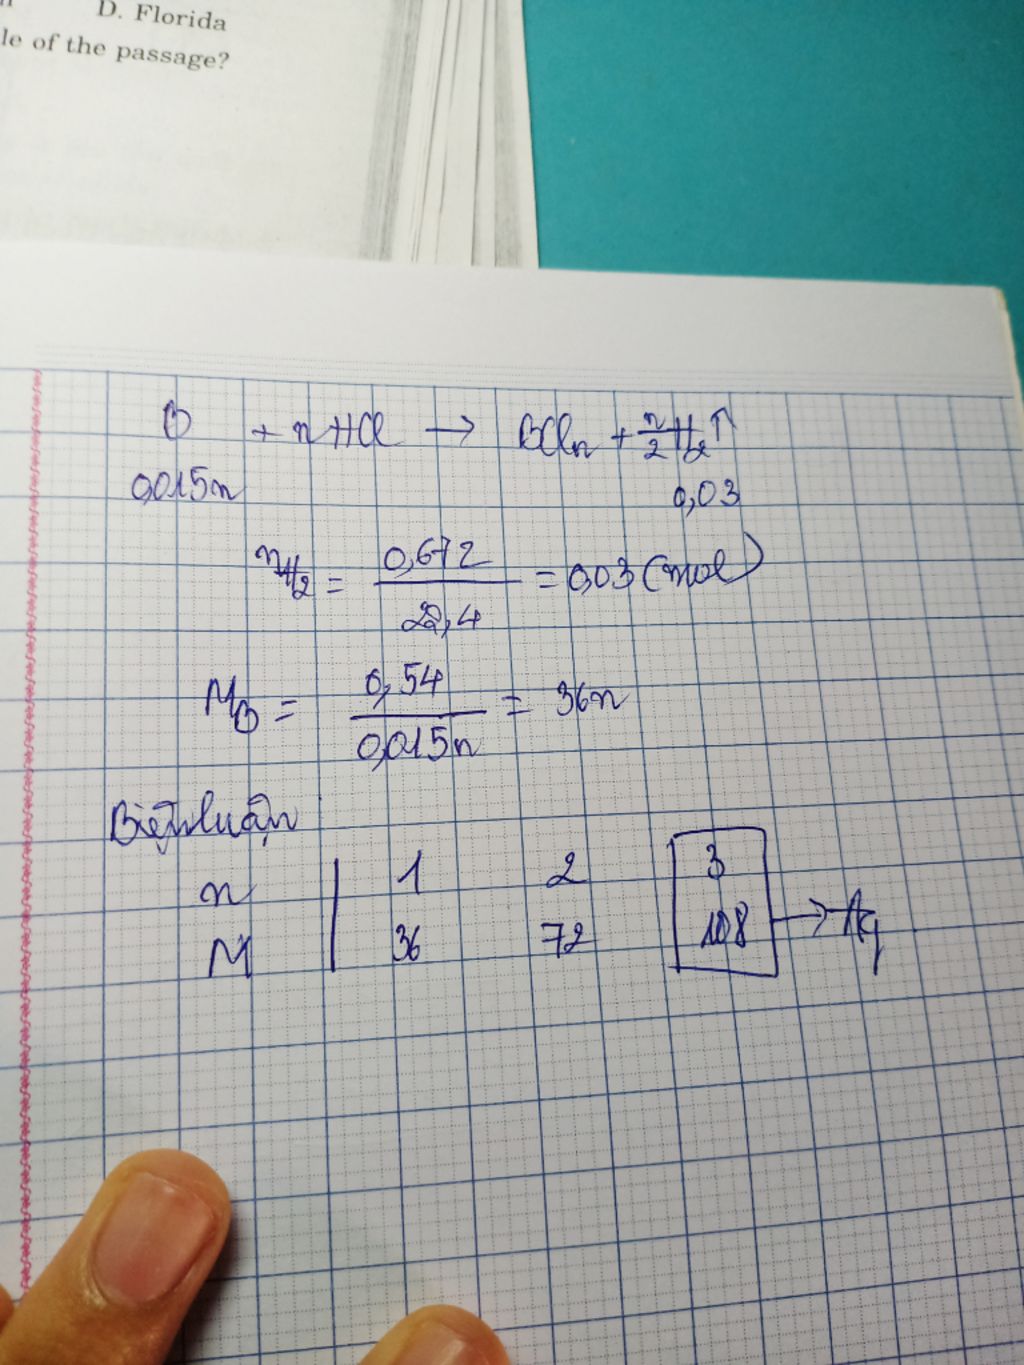 D. Florida
le of the passage?
B + nHCl → BCln + n/2 H2↑
0,015n 0,03
nH2 = 0,672/22,4 = 0,03 (mol)
MB = 0,54/0,015n = 36n
Biện luận
n | 1 2 3
M | 36 72 108 → Ag